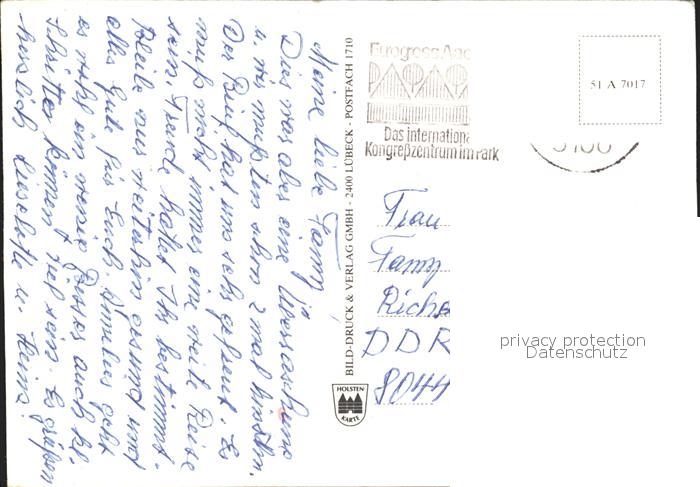 Meine liebe Fanny!
Dies war aber eine Überraschung
u. wir mußten schon 2 mal hinsehn.
Der Brief hat uns sehr gefreut. Es
muß nicht immer eine weite Reise
sein. Freude hattet Ihr bestimmt.
Bleibt nur weiterhin gesund und
alles Gute für Euch. Anneliese geht
es wohl ein wenig besser auch kl.
Schritte können viel sein. Es grüßen
herzlich Lieselotte u. Heinz.
BILD-DRUCK & VERLAG GMBH - 2400 LÜBECK - POSTFACH 1710
HOLSTEN
KARTE
Eurogress Aac
Das internationa
Kongreßzentrum im Park
5100
51 A 7017
Frau
Fanny
Riche
DDR
8044
privacy protection
Datenschutz